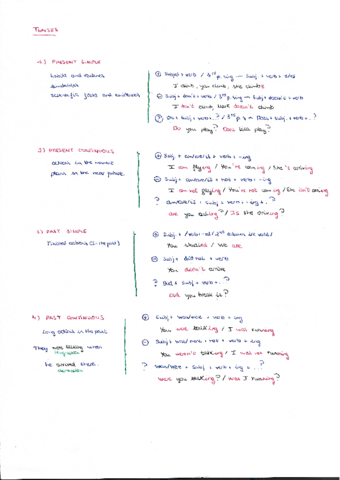 TENSES
1) PRESENT SIMPLE
habits and routines
timetables
scientific facts and
⊕ Subj + verb / 3rd p. sing → Subj + verb + s/es
I climb, you climb, she climbs
⊖ Subj + don't + verb / 3rd p. sing → Subj + doesn't + verb
I don't climb, doesn't climb
? Do + Subj + verb + ..? / 3rd p. s → Does + Subj + verb + ..?
Do you play? Does play?
2) PRESENT CONTINUOUS
actions in the moment
plans in the near future
⊕ Subj + am/are/is + verb + -ing
I am flying / You're coming / She's driving
⊖ Subj + am/are/is + not + verb + -ing
I am not flying / You're not coming / She isn't driving
? am/are/is + Subj + verb + -ing + ..?
are you eating? / Is she driving?
3) PAST SIMPLE
Finished actions (in the past)
⊕ Subj +
You studied / We
⊖ Subj + did not + verb
You didn't
? Did + Subj + verb + ..?
Did you break it?
4) PAST CONTINUOUS
Long actions in the past
They were talking when
he arrived there.
⊕ Subj + was/were + verb + ing
You were talking / I was running
⊖ Subj + was/were + not + verb + -ing
You weren't talking / I was not running
? was/were + Subj + verb + ing + ...?
were you talking? / was I running?